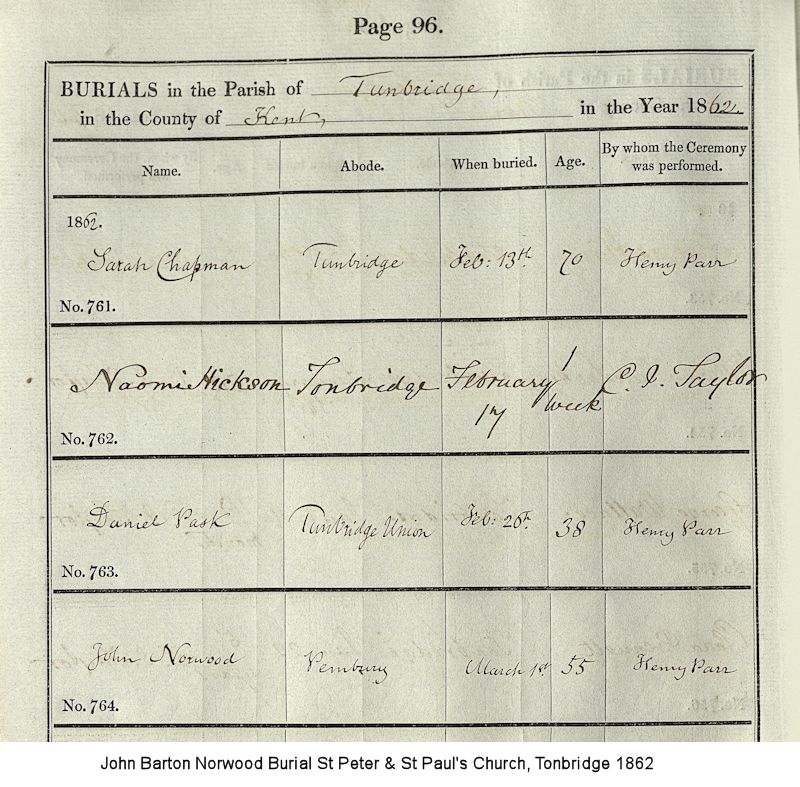 Page 96.
BURIALS in the Parish of Tunbridge,
in the County of Kent, in the Year 1862.
Name. Abode. When buried. Age. By whom the Ceremony was performed.
1862.
Sarah Chapman Tunbridge Feb: 13th. 70 Henry Parr
No. 761.
Naomi Hickson Tonbridge February 17 1 Week C. I. Taylor
No. 762.
Daniel Pask Tunbridge Union Feb: 26th. 38 Henry Parr
No. 763.
John Norwood Pembury March 1st 55 Henry Parr
No. 764.
John Barton Norwood Burial St Peter & St Paul's Church, Tonbridge 1862